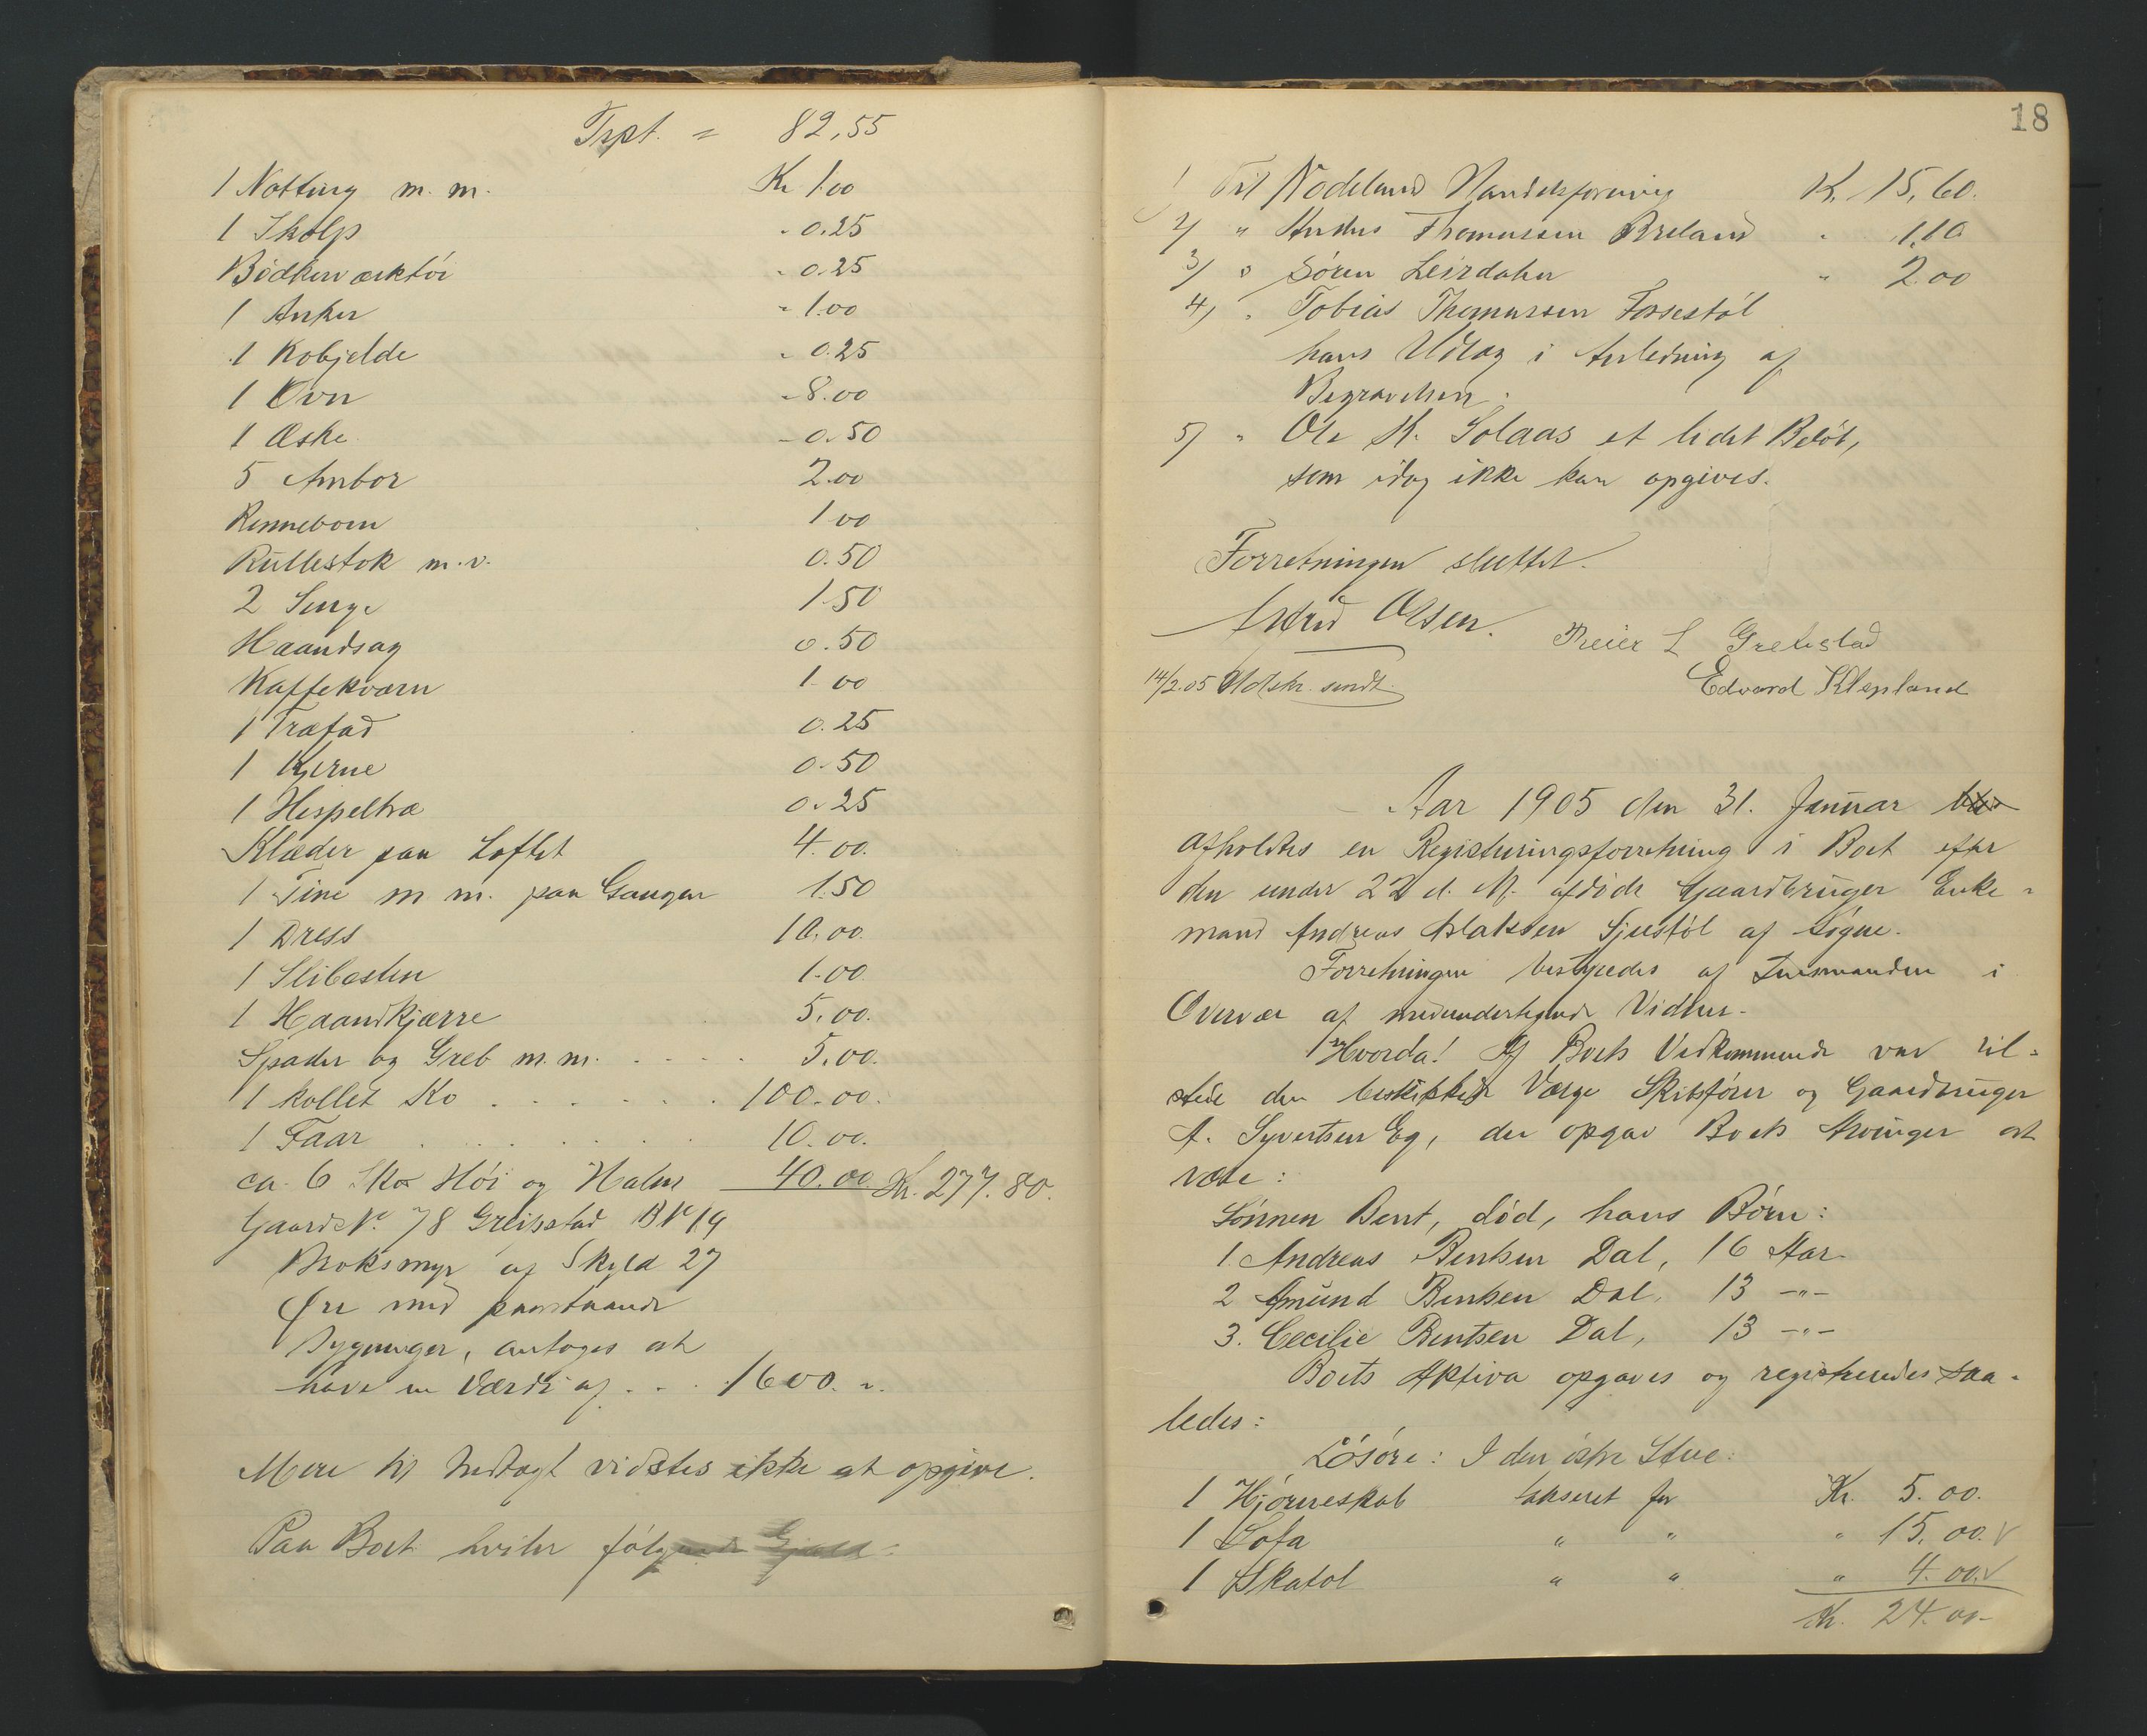 Trpt. = 82,55
1 Notting m. m. Kr 1.00
1 Skolp " 0.25
Bødkerværktøi " 0.25
1 Anker " 1.00
1 Kobjelde " 0.25
1 Ovn " 8.00
1 Æske " 0.50
5 Ambor 2.00
Rennebom 1 00
Rullestok m.v. 0.50
2 Senge 1.50
Haandsag 0.50
Kaffekværn 1.00
1 Træfad 0.25
1 Kjerne 0.50
1 Hespeltræ 0.25
Klæder paa Loftet 4.00.
1 Tine m m. paa Gangen 1.50
1 Dress 10.00.
1 Slibesten 1.00.
1 Haandkjærre 5.00.
Spader og Greb m. m. . . . . 5.00.
1 kollet Ko . . . . . . 100.00.
1 Faar . . . . . . . 10.00.
ca. 6 Høi og Halm 40.00 Kr. 277.80.
Gaards No. 78 Greibstad B No 19
Broksmyr af Skyld 27
Øre med paastaaende
Bygninger, antoges at
have en Værdi af . . . 1600. ".
Mere til Indtægt vidstes ikke at opgive.
Paa Boet hviler følgende Gjæld:
18
1/ Til Nodeland Handelsforening Kr. 15,60.
2/ " Thomassen Breland " 1,10
3/ " Søren Leirdalen " 2.00
4/ " Tobias Thomassen Fossestøl
hans Udlæg i Anledning af
Begravelsen.
5/ " Ole K. Solaas et lidet Beløb,
som idag ikke kan opgives.
Forretningen sluttet.
Olsen. Preier L Greibstad
14/2.05 Udskr. sendt. Edvard Klepland
Aar 1905 den 31. Januar
afholdtes en Registreringsforretning i Boet efter
den under 22 d. M. afdøde Gaardbruger Enke-
mand Andreas Aslaksen Sjustøl af Søgne.
Forretningen bestyredes af Lensmanden i
Overvær af medundertegnede Vidner.
Hvorda! Af Boets Vedkommende var til-
stede den beskikkede Værge Skibsfører og Gaardbruger
A. Syvertsen Eg, der opgav Boets Arvinger at
være:
Sønnen Bent, død, hans Børn:
1. Andreas Bentsen Dal, 16 Aar
2 Amund Bentsen Dal, 13 -"-
3. Cecilie Bentsen Dal, 13 -"-
Boets Aktiva opgaves og registreredes saa-
ledes:
Løsøre: I den østre Stue:
1 Hjørneskab takseret for Kr. 5.00.
1 Sofa " " " 15.00. √
1 Skatol " " " 4.00. √
Kr. 24.00-